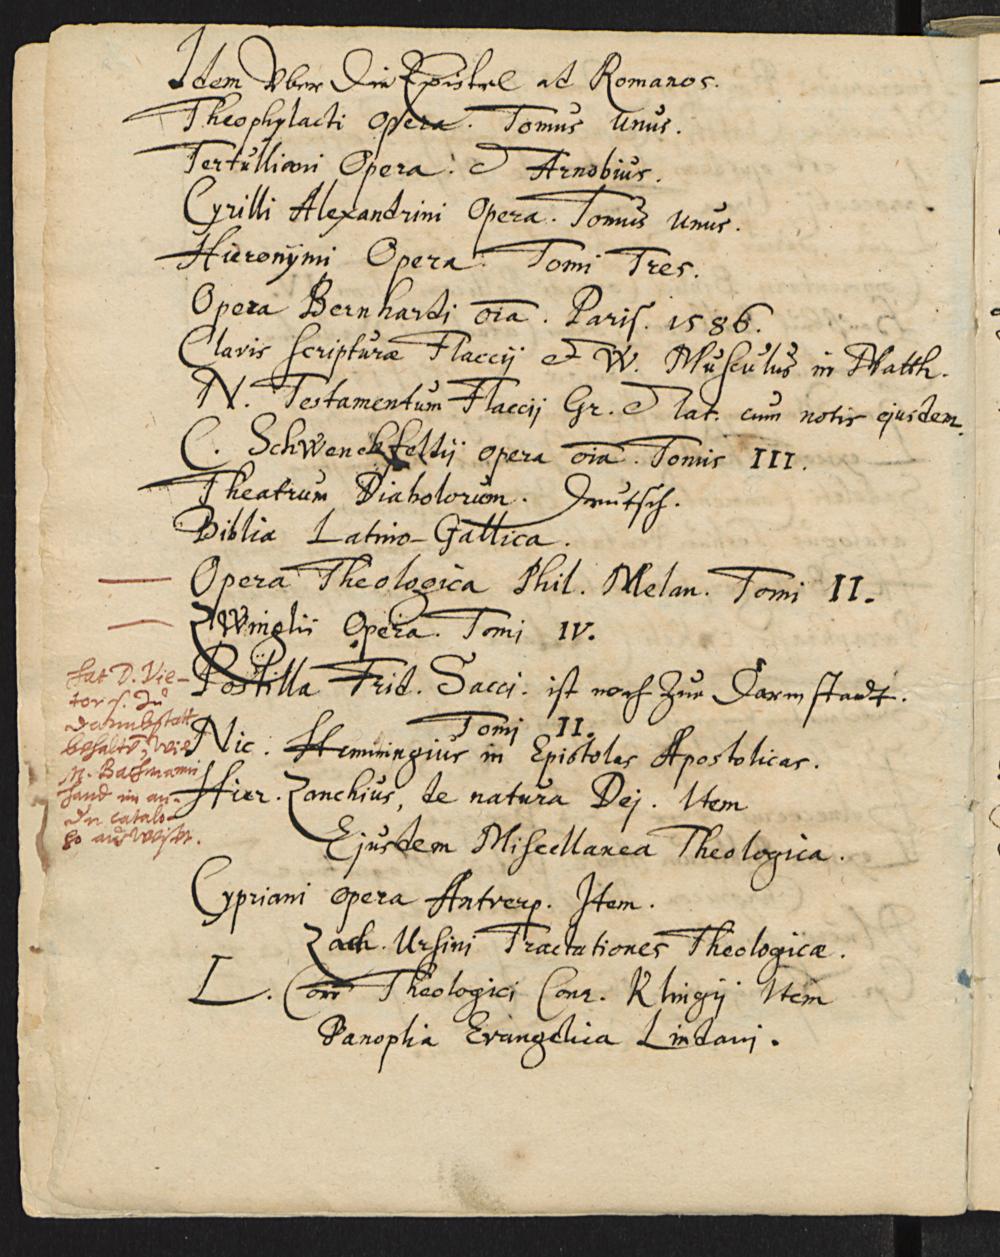 Idem Vber Die Epistel ad Romanos.
Theophylacti Opera. Tomus Unus.
Tertulliani Opera. et Arnobius.
Cyrilli Alexandrini Opera. Tomus Unus.
Hieronÿmi Opera. Tomi Tres.
Opera Bernhardi oīa. Paris. 1586.
Clavis scripturæ Flaccij et W. Musculus in Matth.
N. Testamentum Flaccij Gr. et lat. cum notis ejusdem.
C. Schwenckfeldij opera oīa. Tomis III.
Theatrum Diabolorum. Deutsch.
Biblia Latino-Gallica.
Opera Theologica Phil. Melan. Tomi II.
Zwinglii Opera. Tomi IV.
Postilla Frid. Sacci. ist noch Zur Darmstadt.
Tomi II.
Nic. Hemmingius in Epistolas Apostolicas.
Hier. Zanchius, de natura Dej. Item
Ejusdem Miscellanea Theologica.
Cypriani opera Antverp. Item.
Zach. Ursini Tractationes Theologicæ.
L. Com̄ Theologici Conr. Klingij Item
Panoplia Evangelica Lindani.
hat D. Vie-
tor s. Zu
Darmbstatt
behaltē, wie
M. Bachmanni
hand im an-
dn catalo-
go außweist.